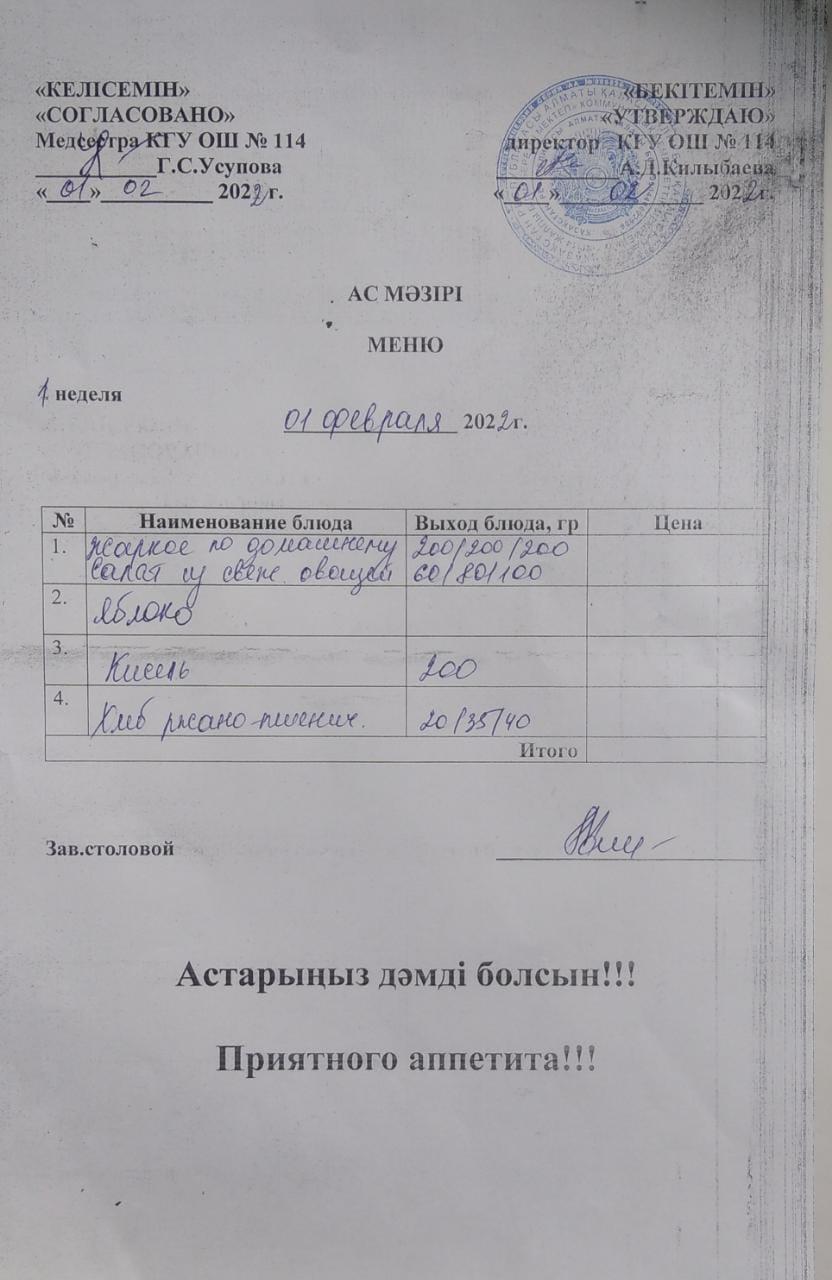 «КЕЛІСЕМІН»
«СОГЛАСОВАНО»
Медсестра КГУ ОШ № 114
Г.С.Усупова
«01» 02 2022г.
«БЕКІТЕМІН»
«УТВЕРЖДАЮ»
директор КГУ ОШ № 114
А.Д.Килыбаева
«01» 02 2022г.
АС МӘЗІРІ
МЕНЮ
1. неделя
01 февраля 2022г.
№ Наименование блюда Выход блюда, гр Цена
1. Жаркое по домашнему 200/200/200
Салат из свеж. овощей 60/80/100
2. Яблоко
3. Кисель 200
4. Хлеб ржано-пшенич. 20/35/40
Итого
Зав.столовой
Астарыңыз дәмді болсын!!!
Приятного аппетита!!!